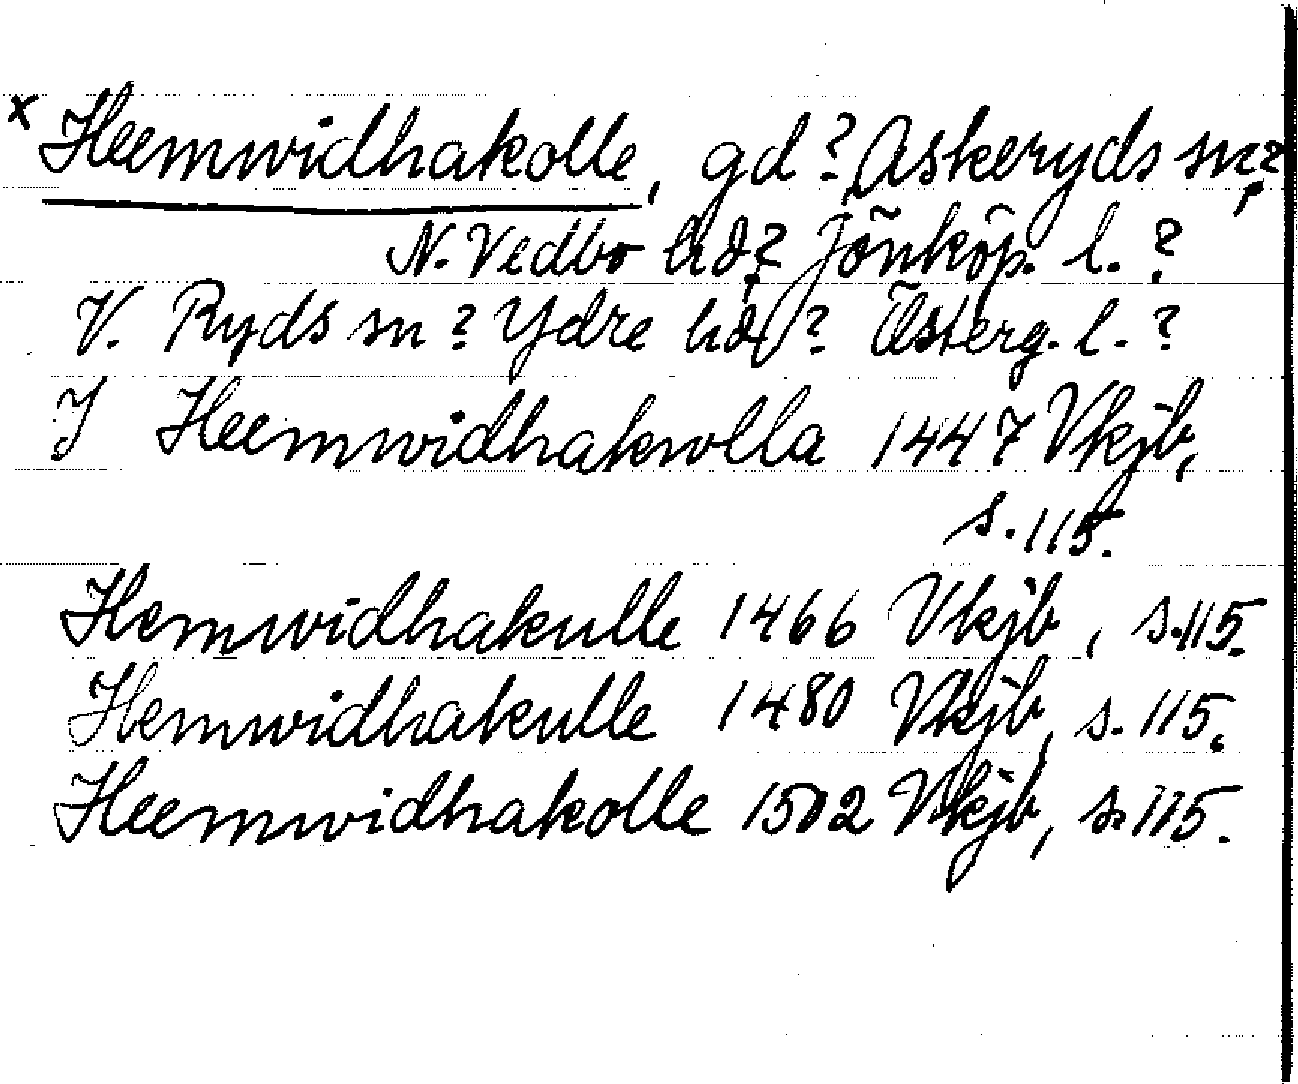 x Heemwidhakolle, gd? Askeryds sn?,
N. Vedbo hd?, Jönköp. l. ?
V. Ryds sn? Ydre hd? Österg. l. ?
J Heemwidhakwlla 1447 Vkjb,
s. 115.
Hemwidhakulle 1466 Vkjb, s. 115.
Hemwidhakulle 1480 Vkjb, s. 115.
Heemwidhakolle 1502 Vkjb, s. 115.